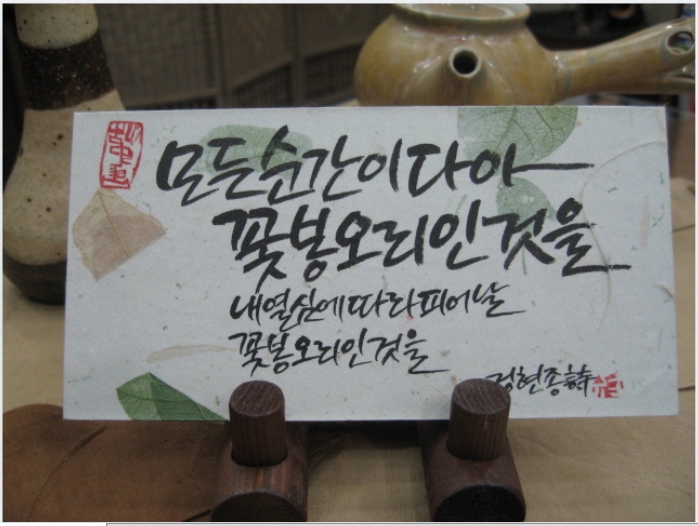 모든순간이다아
꽃봉오리인것을
내열심에따라피어날
꽃봉오리인것을
정현종詩